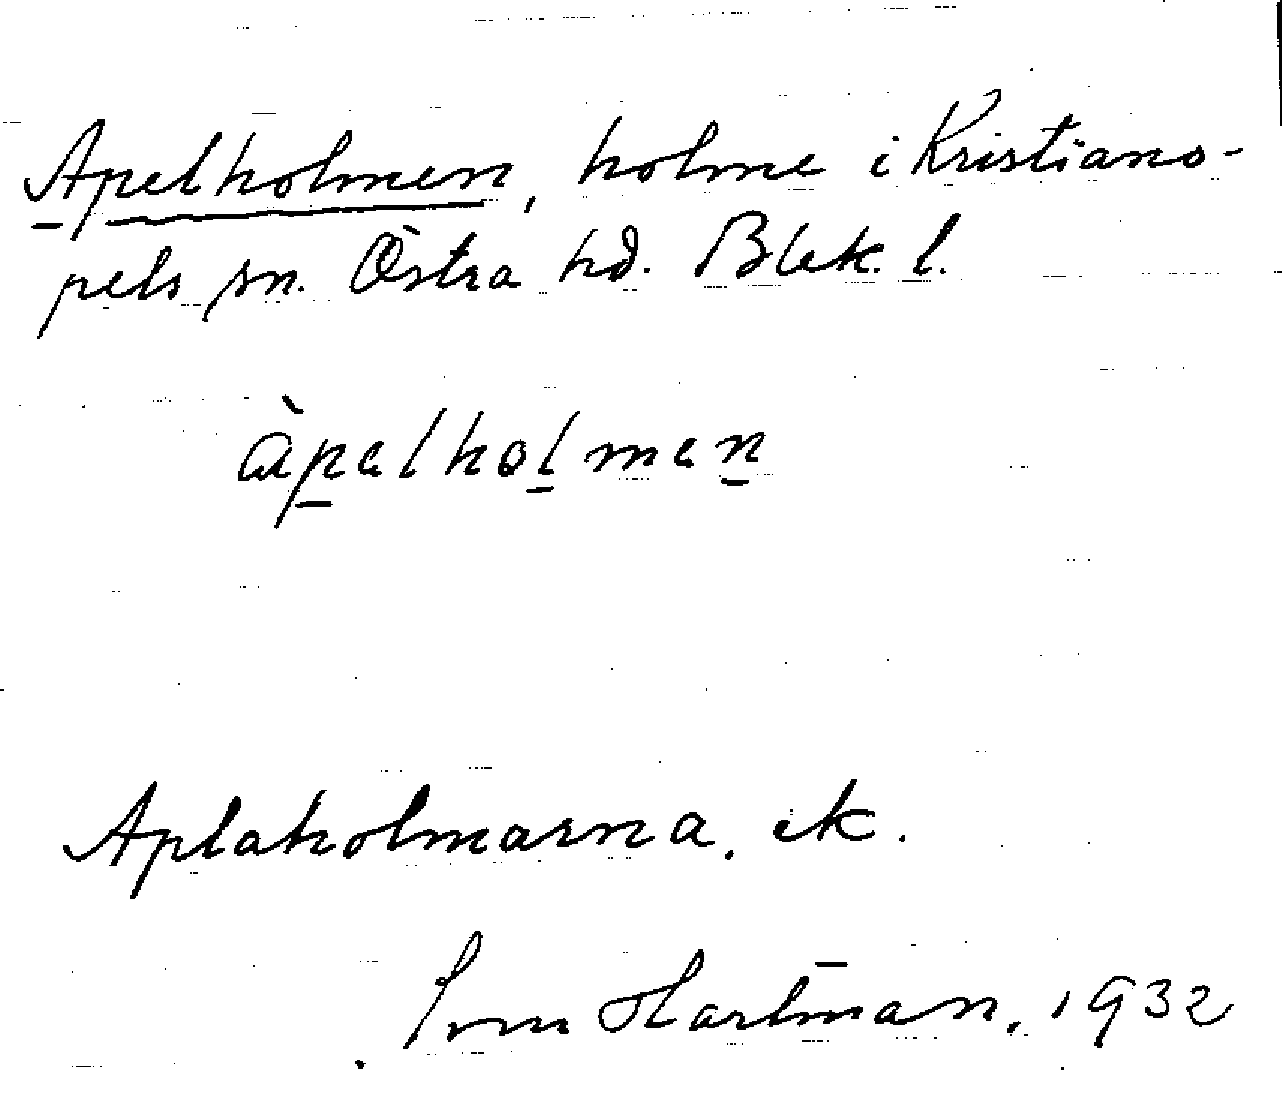 Apelholmen, holme i Kristiano-
pels sn. Östra hd. Blek. l.
àpelholmen
Aplaholmarna. ek.
Hartman, 1932